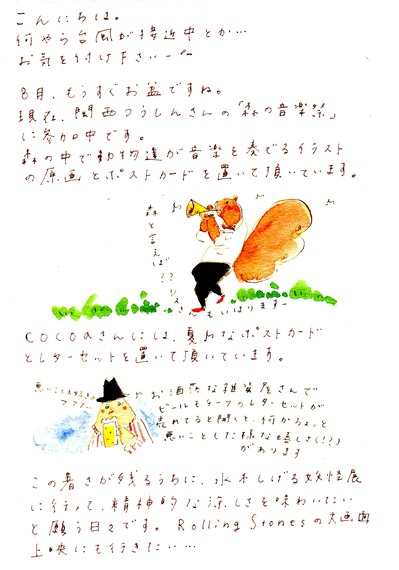 こんにちは。
何やら台風が接近中とか…
お気を付け下さいー
8月、もうすぐお盆ですね。
現在、関西つうしんさんの「森の音楽祭」
に参加中です。
森の中で動物達が音楽を奏でるイラスト
の原画とポストカードを置いて頂いています。
森と言えば??
リスさんもいはりますー
cocoaさんには、夏らしなポストカード
とレターセットを置いて頂いています。
お洒落な雑貨屋さんで
ビールモチーフのレターセットが
売れてると聞くと、何かちょっと
悪いことした様な嬉しさ(!?)
があります
この暑さが残るうちに、水木しげる妖怪展
に行って、精神的な涼しさを味わいたい
と願う日々です。Rolling Stonesの映画
上映にも行きたい…